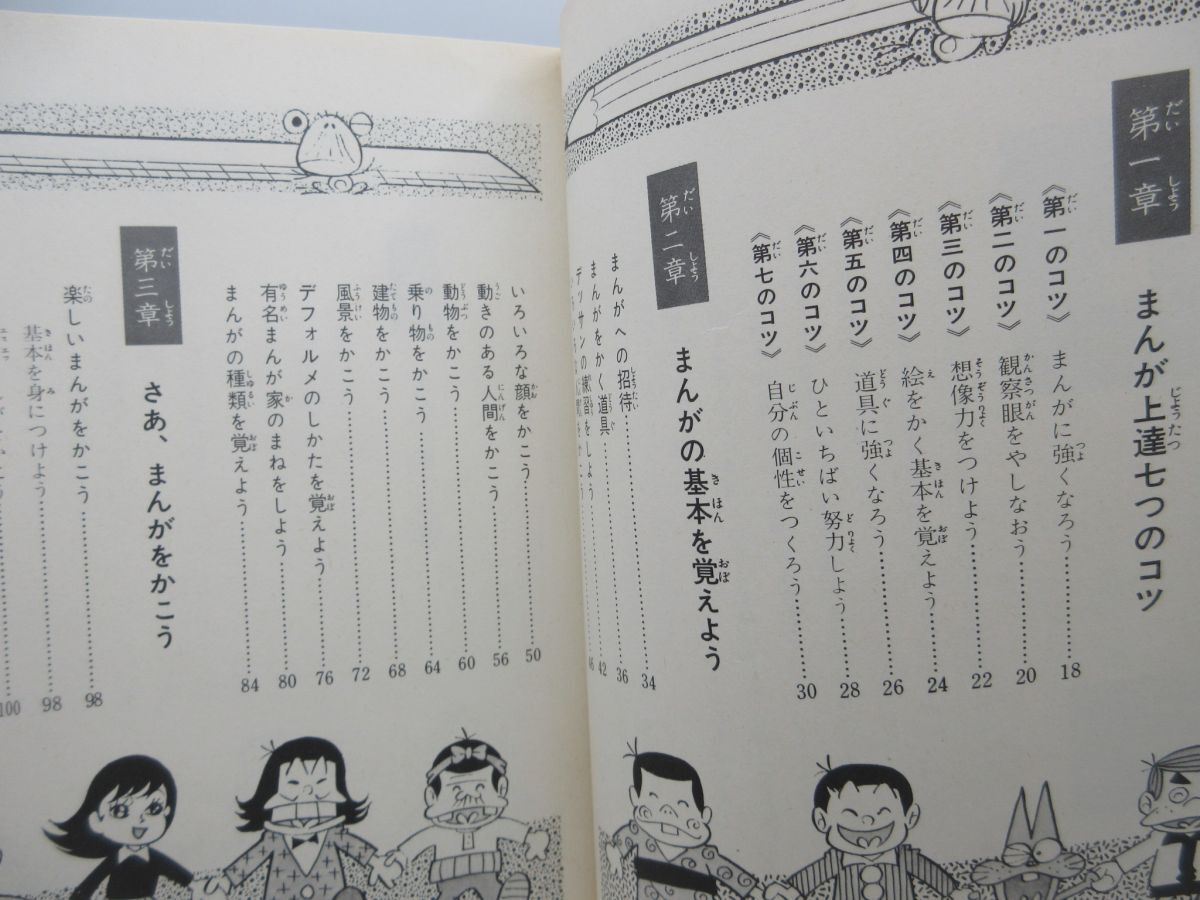 第一章 まんが上達七つのコツ
《第一のコツ》 まんがに強くなろう………18
《第二のコツ》 観察眼をやしなおう………20
《第三のコツ》 想像力をつけよう………22
《第四のコツ》 絵をかく基本を覚えよう………24
《第五のコツ》 道具に強くなろう………26
《第六のコツ》 ひといちばい努力しよう………28
《第七のコツ》 自分の個性をつくろう………30
第二章 まんがの基本を覚えよう
まんがへの招待………34
まんがをかく道具………36
デッサンの練習をしよう………42
46
いろいろな顔をかこう………50
動きのある人間をかこう………56
動物をかこう………60
乗り物をかこう………64
建物をかこう………68
風景をかこう………72
デフォルメのしかたを覚えよう………76
有名まんが家のまねをしよう………80
まんがの種類を覚えよう………84
第三章 さあ、まんがをかこう
楽しいまんがをかこう………98
基本を身につけよう………98
100